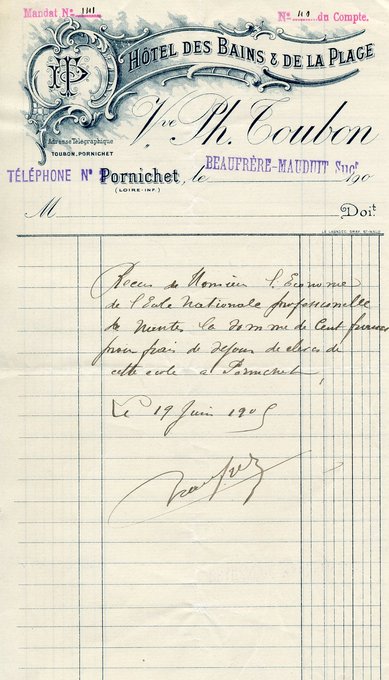 Mandat No 1101
No 110 du Compte.
HÔTEL DES BAINS & DE LA PLAGE
Vve Ph. Toubon
Adresse Télégraphique
TOUBON, PORNICHET
BEAUFRÈRE-MAUDUIT Sucr
TÉLÉPHONE No
Pornichet, le 190
(LOIRE-INF.)
M Doit
Recu de Monsieur l'Econome
de l'Ecole Nationale professionnelle
de Nantes la somme de Cent francs
pour frais de sejour de eleves de
cette ecole a Pornichet
Le 19 Juin 1905